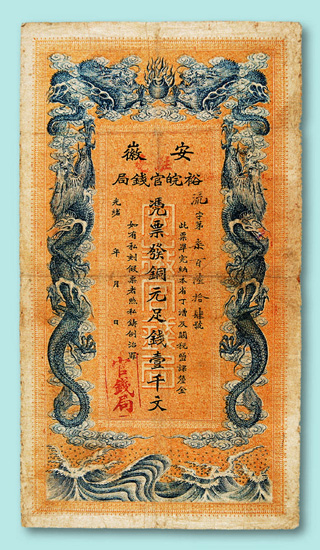 安徽
裕皖官錢局
流字第柒百陸拾肆號
此票準完納本省丁漕及關稅鹽課釐金
憑票發銅元足錢壹千文
如有私刻假票者照私鑄例治罪
光緒 年 月 日
官錢局